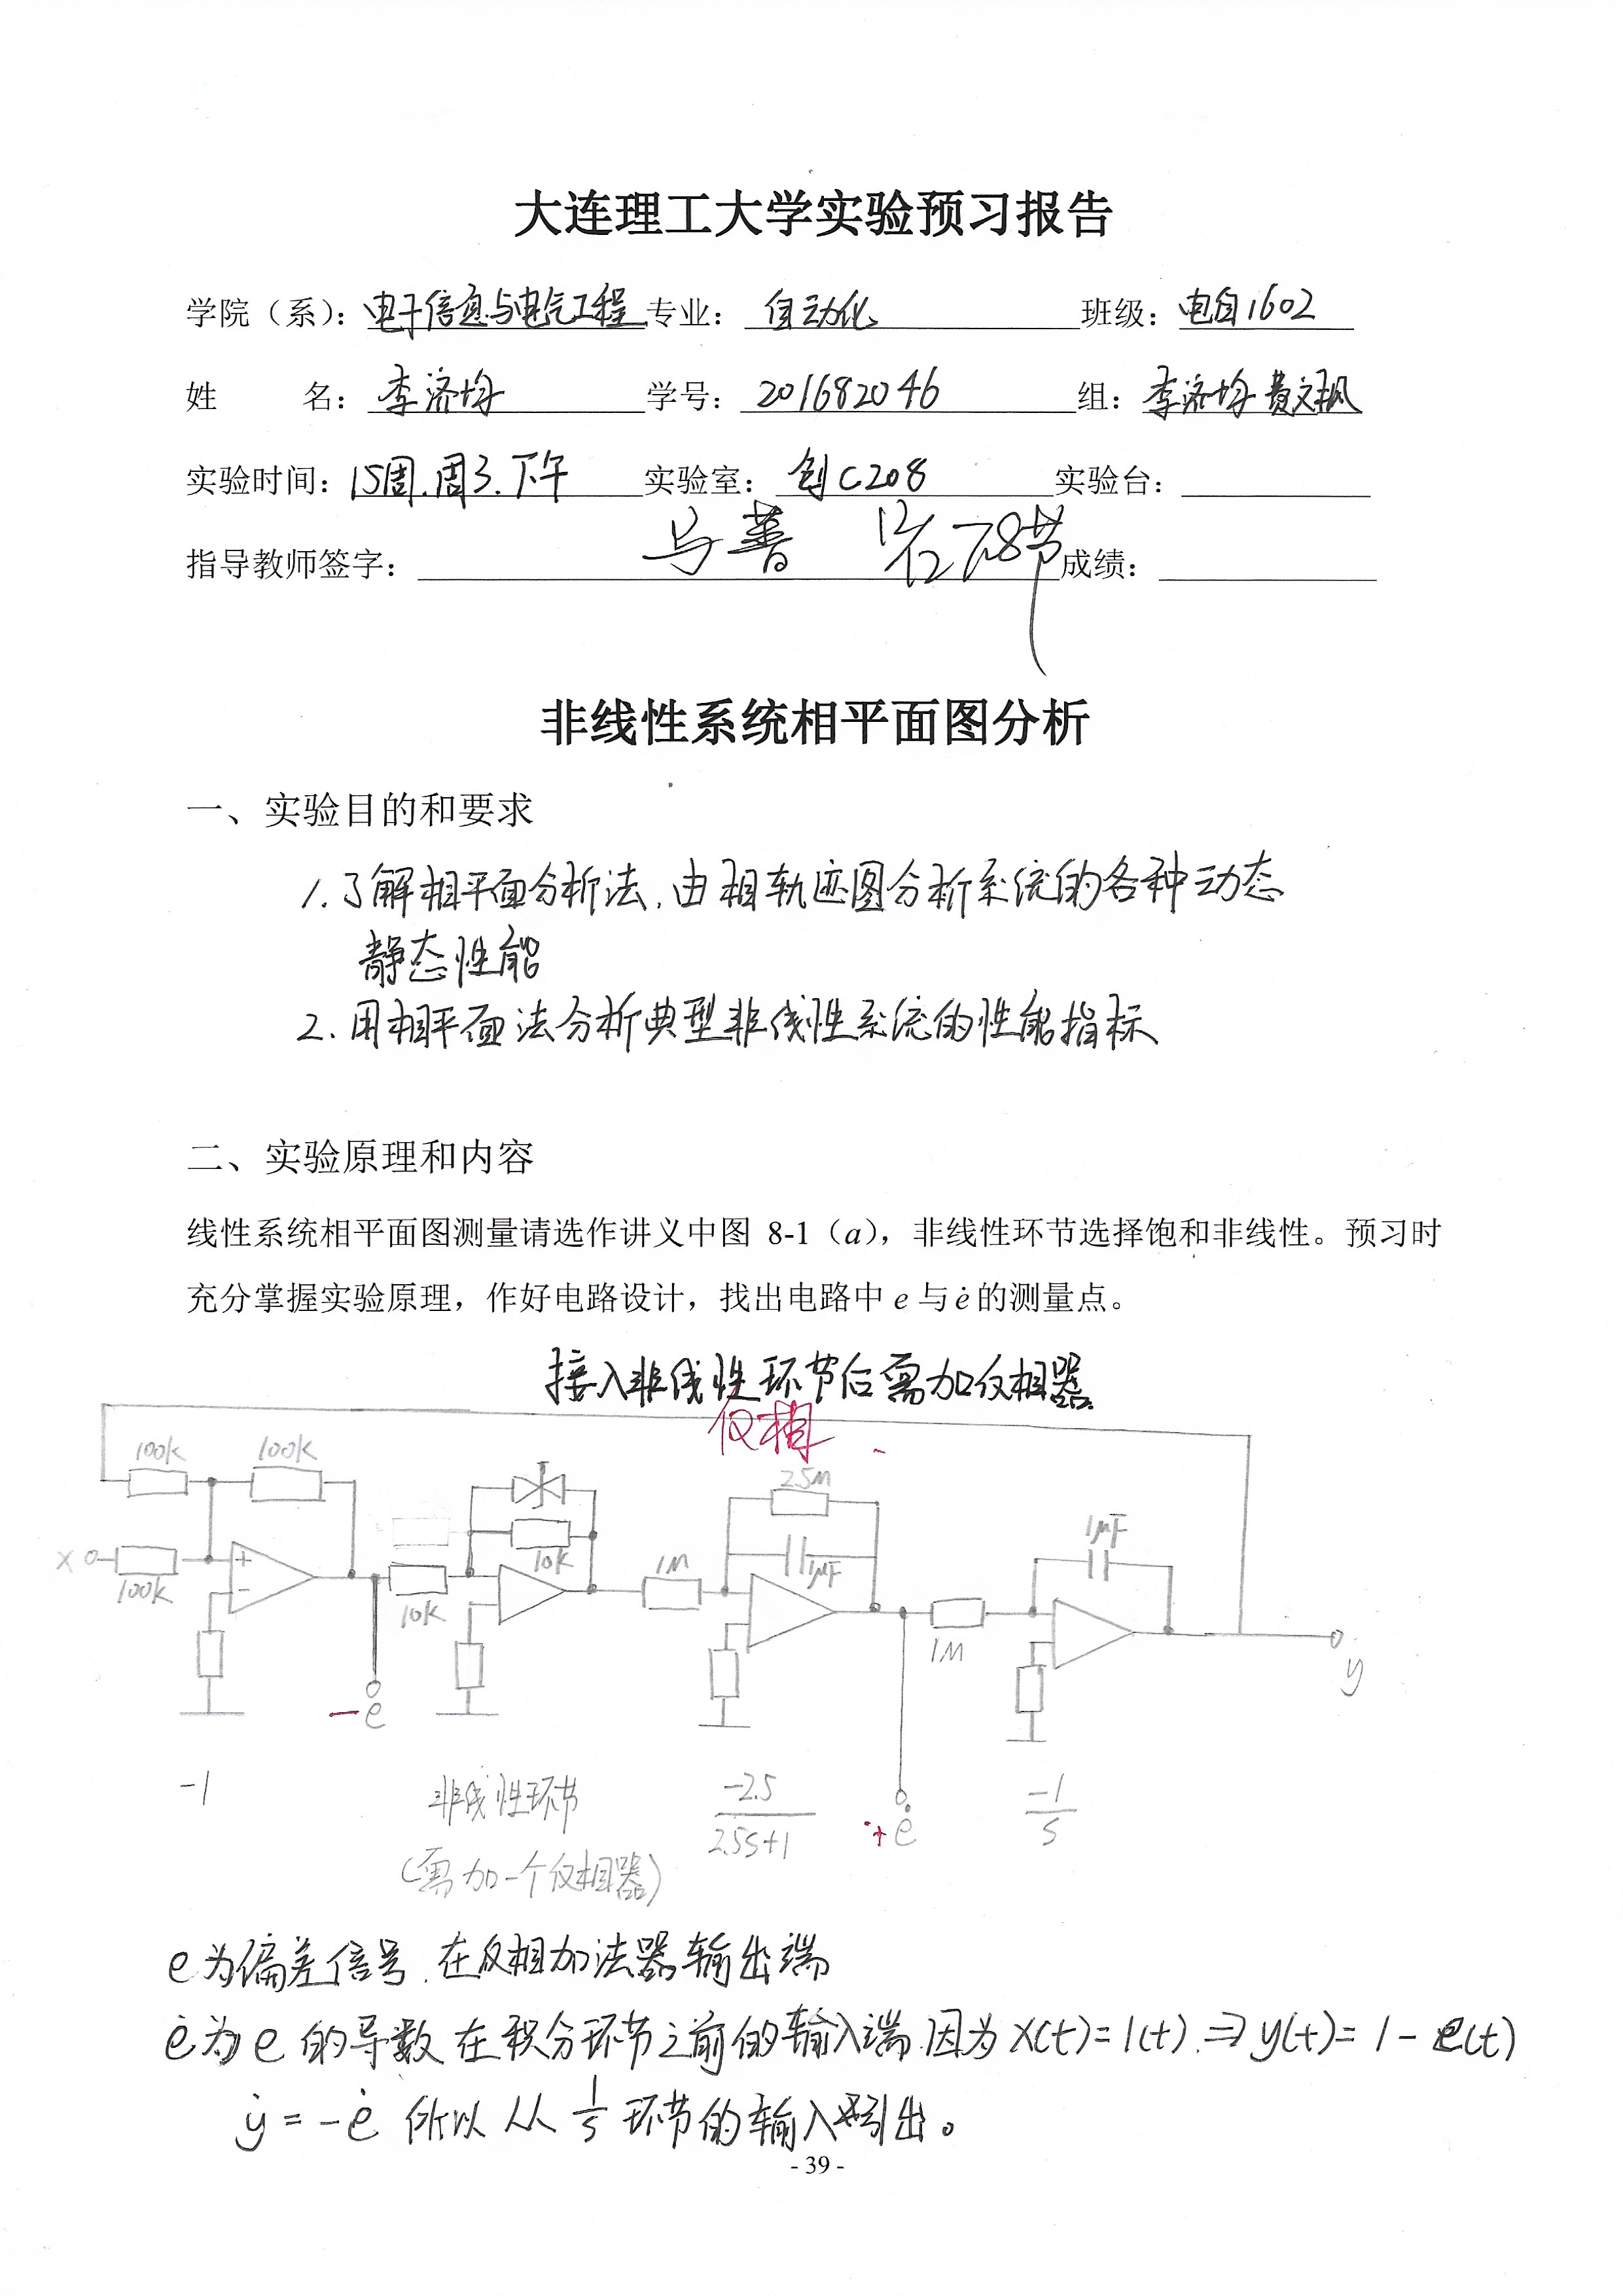 大连理工大学实验预习报告
学院（系）：电子信息与电气工程 专业：自动化 班级：电自1602
姓 名：李济均 学号：201682046 组：李济均 费文枫
实验时间：15周.周3.下午 实验室：创C208 实验台：
指导教师签字：马蔷 7.8节 成绩：
非线性系统相平面图分析
一、实验目的和要求
1.了解相平面分析法,由相轨迹图分析系统的各种动态
静态性能
2.用相平面法分析典型非线性系统的性能指标
二、实验原理和内容
线性系统相平面图测量请选作讲义中图 8-1（a），非线性环节选择饱和非线性。预习时
充分掌握实验原理，作好电路设计，找出电路中 e 与 ė 的测量点。
接入非线性环节后需加反相器.
反相
100k 100k 2.5M
1μF
x 100k + - 10k 10k 1M 1μF 1M
y
-e
+ė
-1 非线性环节 -2.5/(2.5s+1) -1/s
(需加一个反相器)
e为偏差信号.在反相加法器输出端
ė为e的导数 在积分环节之前的输入端.因为x(t)=1(t).⇒y(t)=1-e(t)
ẏ=-ė 所以从1/s环节的输入引出。
- 39 -